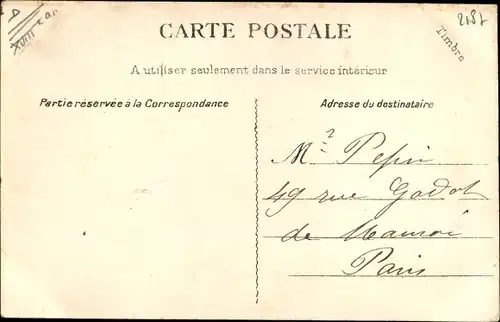 XVIII e ar
2187
CARTE POSTALE
Timbre
A utiliser seulement dans le service intérieur
Partie réservée à la Correspondance
Adresse du destinataire
Mr Pepin
49 rue Godot
de Mauroi
Paris